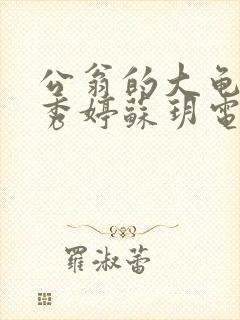 公翁的大龟
秀婷蘇玥電
羅淑蕾